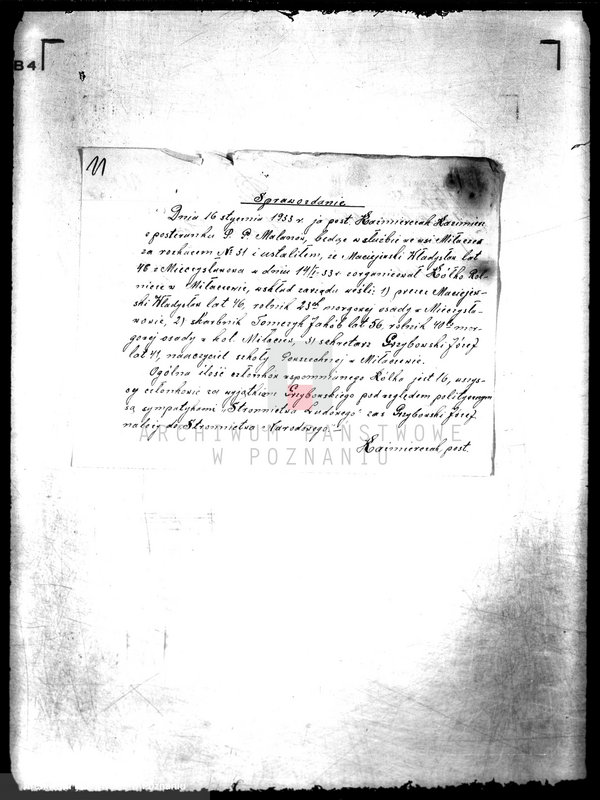 B4
11
Sprawozdanie
Dnia 16 stycznia 1933 r. ja post. Kaźmierczak Kazimierz
z posterunku P. P. Malanów, będąc w służbie we wsi Miłaczew
za rozkazem № 31 ustaliłem, że Maciejewski Władysław lat
46 z Mieczysławowa w dniu 14/I 33 r zorganizował Kółko Rol-
nicze w Miłaczewie, w skład zarządu weśli: 1) prezes Maciejew-
ski Władysław lat 46, rolnik 23 morgowej osady w Mieczysła-
wowie, 2) skarbnik Tomczyk Jakób lat 56, rolnik 40 mor-
gowej osady w kol. Miłaczew, 3) sekretarz Grzybowski Józef
lat 41, nauczyciel szkoły Powszechnej w Miłaczewie.
Ogólna ilość członków wspomnianego Kółka jest 16, wszys-
cy członkowie za wyjątkiem Grzybowskiego pod względem politycznym
są sympatykami "Stronnictwa Ludowego" zaś Grzybowski Józef
należy do Stronnictwa Narodowego.
Kaźmierczak, post.
ARCHIWUM PAŃSTWOWE
W POZNANIU